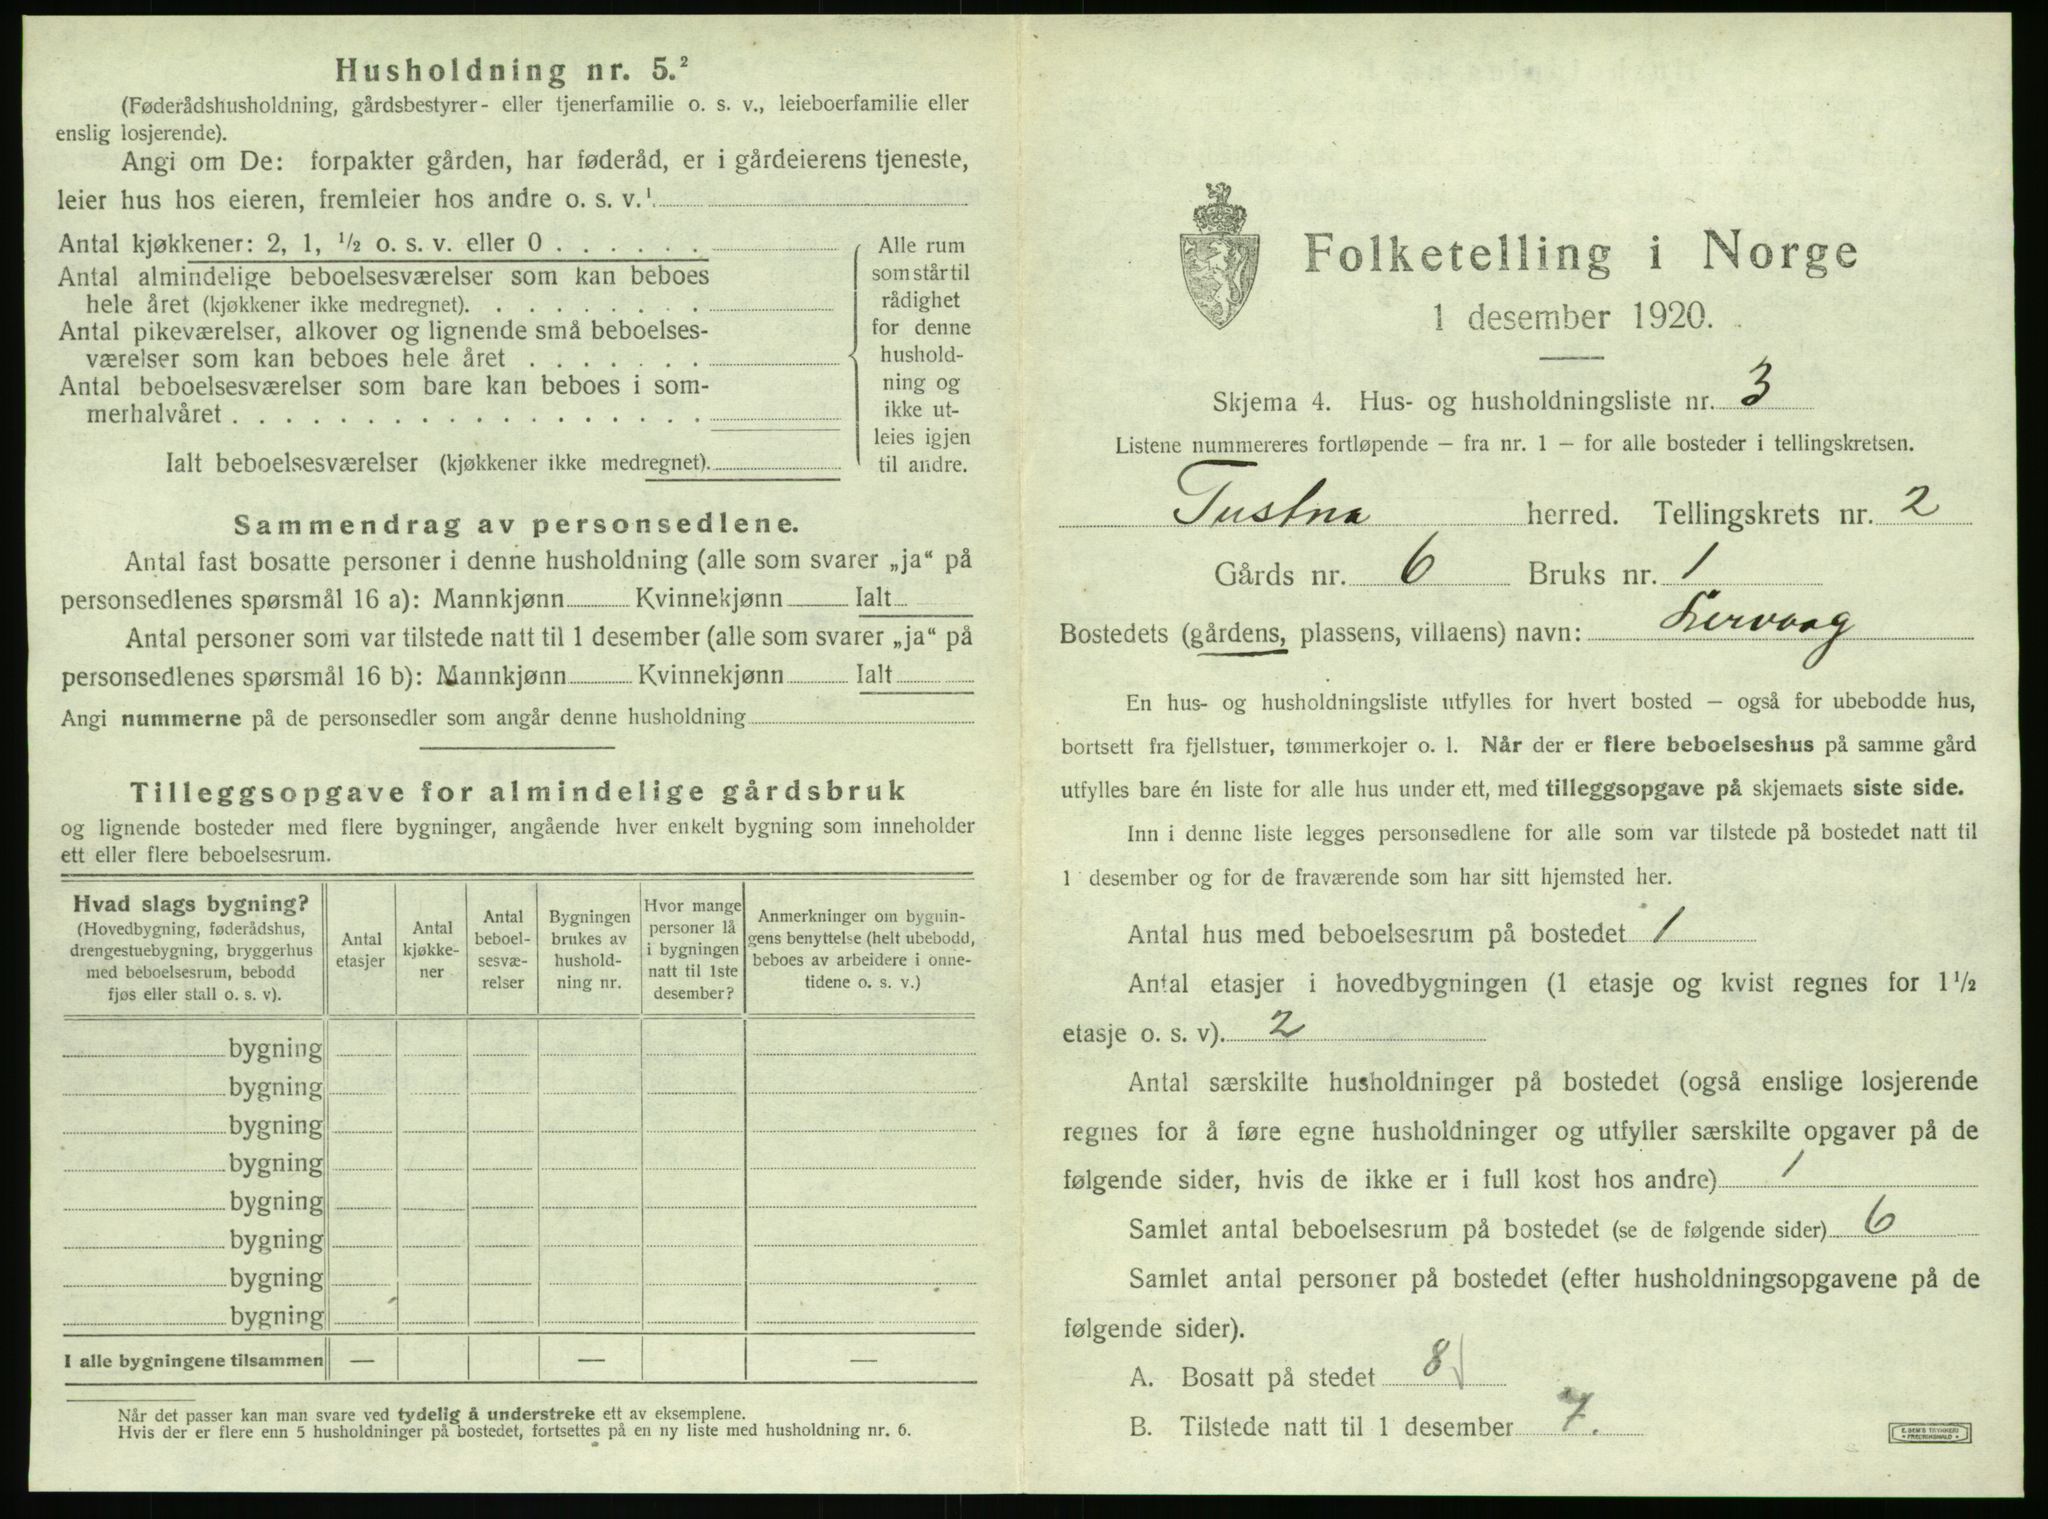 Husholdning nr. 5.²
(Føderådshusholdning, gårdsbestyrer- eller tjenerfamilie o. s. v., leieboerfamilie eller
enslig losjerende).
Angi om De: forpakter gården, har føderåd, er i gårdeierens tjeneste,
leier hus hos eieren, fremleier hos andre o. s. v.¹
Antal kjøkkener: 2, 1, ½ o. s. v. eller 0 . . . . . .
Antal almindelige beboelsesværelser som kan beboes
hele året (kjøkkener ikke medregnet). . . . . . . . .
Antal pikeværelser, alkover og lignende små beboelses-
værelser som kan beboes hele året . . . . . . .
Antal beboelsesværelser som bare kan beboes i som-
merhalvåret . . . . . . . . . . . . . . . . . .
Ialt beboelsesværelser (kjøkkener ikke medregnet).
Alle rum
som står til
rådighet
for denne
hushold-
ning og
ikke ut-
leies igjen
til andre.
Sammendrag av personsedlene.
Antal fast bosatte personer i denne husholdning (alle som svarer „ja“ på
personsedlenes spørsmål 16 a): Mannkjønn Kvinnekjønn Ialt
Antal personer som var tilstede natt til 1 desember (alle som svarer „ja“ på
personsedlenes spørsmål 16 b): Mannkjønn Kvinnekjønn Ialt
Angi nummerne på de personsedler som angår denne husholdning
Tilleggsopgave for almindelige gårdsbruk
og lignende bosteder med flere bygninger, angående hver enkelt bygning som inneholder
ett eller flere beboelsesrum.
Hvad slags bygning?
(Hovedbygning, føderådshus,
drengestuebygning, bryggerhus
med beboelsesrum, bebodd
fjøs eller stall o. s. v).
Antal
etasjer
Antal
kjøkke-
ner
Antal
beboel-
sesvæ-
relser
Bygningen
brukes av
hushold-
ning nr.
Hvor mange
personer lå
i bygningen
natt til 1ste
desember?
Anmerkninger om bygnin-
gens benyttelse (helt ubebodd,
beboes av arbeidere i onne-
tidene o. s. v.)
bygning
bygning
bygning
bygning
bygning
bygning
bygning
bygning
I alle bygningene tilsammen — — —
Når det passer kan man svare ved tydelig å understreke ett av eksemplene.
Hvis der er flere enn 5 husholdninger på bostedet, fortsettes på en ny liste med husholdning nr. 6.
Folketelling i Norge
1 desember 1920.
Skjema 4. Hus- og husholdningsliste nr. 3
Listene nummereres fortløpende — fra nr. 1 — for alle bosteder i tellingskretsen.
Tustna herred. Tellingskrets nr. 2
Gårds nr. 6 Bruks nr. 1
Bostedets (gårdens, plassens, villaens) navn: Lervaag
En hus- og husholdningsliste utfylles for hvert bosted — også for ubebodde hus,
bortsett fra fjellstuer, tømmerkojer o. l. Når der er flere beboelseshus på samme gård
utfylles bare én liste for alle hus under ett, med tilleggsopgave på skjemaets siste side.
Inn i denne liste legges personsedlene for alle som var tilstede på bostedet natt til
1 desember og for de fraværende som har sitt hjemsted her.
Antal hus med beboelsesrum på bostedet 1
Antal etasjer i hovedbygningen (1 etasje og kvist regnes for 1½
etasje o. s. v). 2
Antal særskilte husholdninger på bostedet (også enslige losjerende
regnes for å føre egne husholdninger og utfyller særskilte opgaver på de
følgende sider, hvis de ikke er i full kost hos andre) 1
Samlet antal beboelsesrum på bostedet (se de følgende sider) 6
Samlet antal personer på bostedet (efter husholdningsopgavene på de
følgende sider).
A. Bosatt på stedet 8
B. Tilstede natt til 1 desember 7.
E. SEM'S TRYKKERI
FREDRIKSHALD